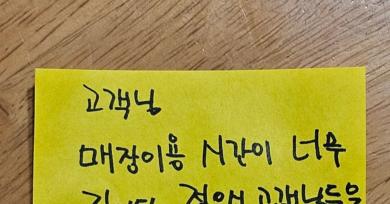 고객님
매장이용 시간이 너무
고객님들을